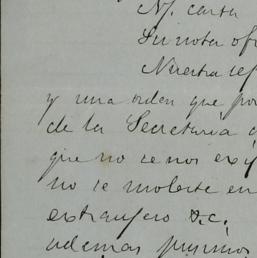 Nṛ. carta
Su nota ofi
Nuestra ref
y una orden que po
de la Secretaría
que no se nos exij
no se moleste en
extranjero &c.
ademas pusimos